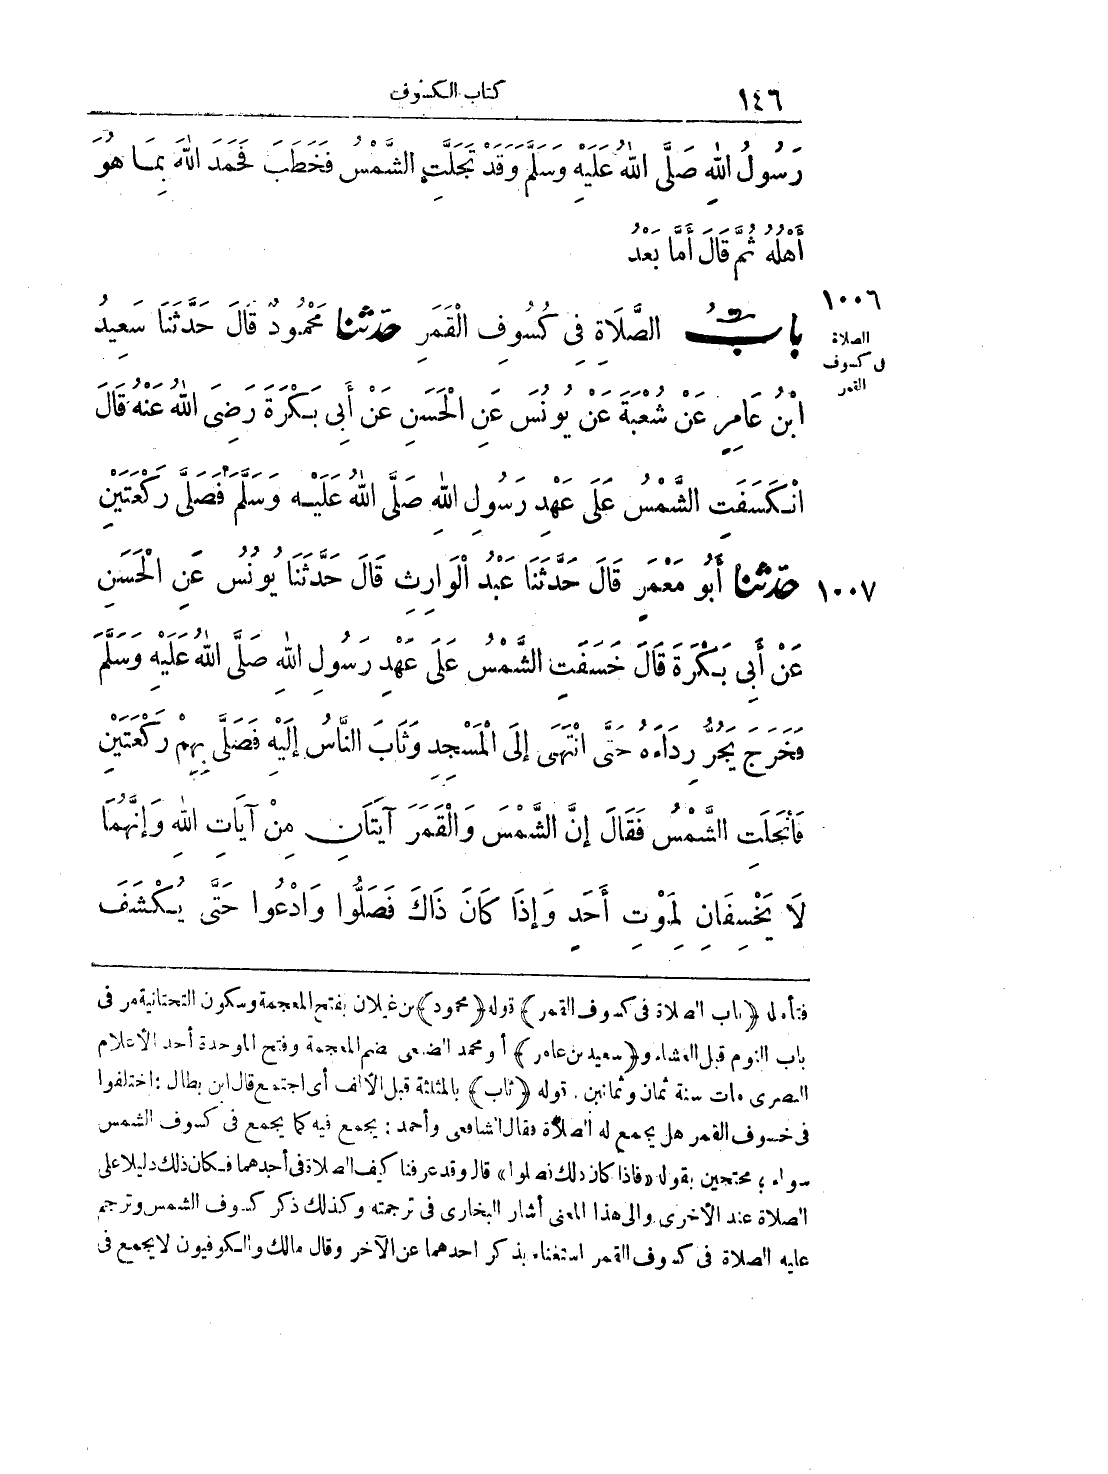 ١٤٦ كتاب الكسوف
رَسُولُ اللهِ صَلَّى اللهُ عَلَيْهِ وَسَلَّمَ وَقَدْ تَجَلَّتِ الشَّمْسُ فَخَطَبَ فَحَمِدَ اللهَ بِمَا هُوَ
أَهْلُهُ ثُمَّ قَالَ أَمَّا بَعْدُ
١٠٠٦
الصلاة
فى كسوف
القمر
بابُ الصَّلَاةِ فِى كُسُوفِ الْقَمَرِ حدثنا مَحْمُودٌ قَالَ حَدَّثَنَا سَعِيدُ
ابْنُ عَامِرٍ عَنْ شُعْبَةَ عَنْ يُونُسَ عَنِ الْحَسَنِ عَنْ أَبِى بَكْرَةَ رَضِىَ اللهُ عَنْهُ قَالَ
انْكَسَفَتِ الشَّمْسُ عَلَى عَهْدِ رَسُولِ اللهِ صَلَّى اللهُ عَلَيْهِ وَسَلَّمَ فَصَلَّى رَكْعَتَيْنِ
١٠٠٧ حدثنا أَبُو مَعْمَرٍ قَالَ حَدَّثَنَا عَبْدُ الْوَارِثِ قَالَ حَدَّثَنَا يُونُسُ عَنِ الْحَسَنِ
عَنْ أَبِى بَكْرَةَ قَالَ خَسَفَتِ الشَّمْسُ عَلَى عَهْدِ رَسُولِ اللهِ صَلَّى اللهُ عَلَيْهِ وَسَلَّمَ
فَخَرَجَ يَجُرُّ رِدَاءَهُ حَتَّى انْتَهَى إِلَى الْمَسْجِدِ وَثَابَ النَّاسُ إِلَيْهِ فَصَلَّى بِهِمْ رَكْعَتَيْنِ
فَانْجَلَتِ الشَّمْسُ فَقَالَ إِنَّ الشَّمْسَ وَالْقَمَرَ آيَتَانِ مِنْ آيَاتِ اللهِ وَإِنَّهُمَا
لَا يَخْسِفَانِ لِمَوْتِ أَحَدٍ وَإِذَا كَانَ ذَاكَ فَصَلُّوا وَادْعُوا حَتَّى يُكْشَفَ
فتأمل ﴿باب الصلاة فى كسوف القمر﴾ قوله ﴿محمود﴾ بن غيلان بفتح المعجمة وسكون التحتانية مر فى
باب النوم قبل العشاء و﴿سعيد بن عامر﴾ أبو محمد الضبعى بضم المعجمة وفتح الموحدة أحد الأعلام
البصرى مات سنة ثمان وثمانين. قوله ﴿ثاب﴾ بالمثلثة قبل الألف أى اجتمع قال ابن بطال: اختلفوا
فى خسوف القمر هل يجمع له الصلاة فقال الشافعى وأحمد: يجمع فيه كما يجمع فى كسوف الشمس
سواء؛ محتجين بقوله «فاذا كان ذلك فصلوا» قال وقد عرفنا كيف الصلاة فى أحدهما فكان ذلك دليلا على
الصلاة عند الأخرى والى هذا المعنى أشار البخارى فى ترجمته وكذلك ذكر كسوف الشمس وترجم
عليه الصلاة فى كسوف القمر استغناء بذكر احدهما عن الآخر وقال مالك والكوفيون لا يجمع فى